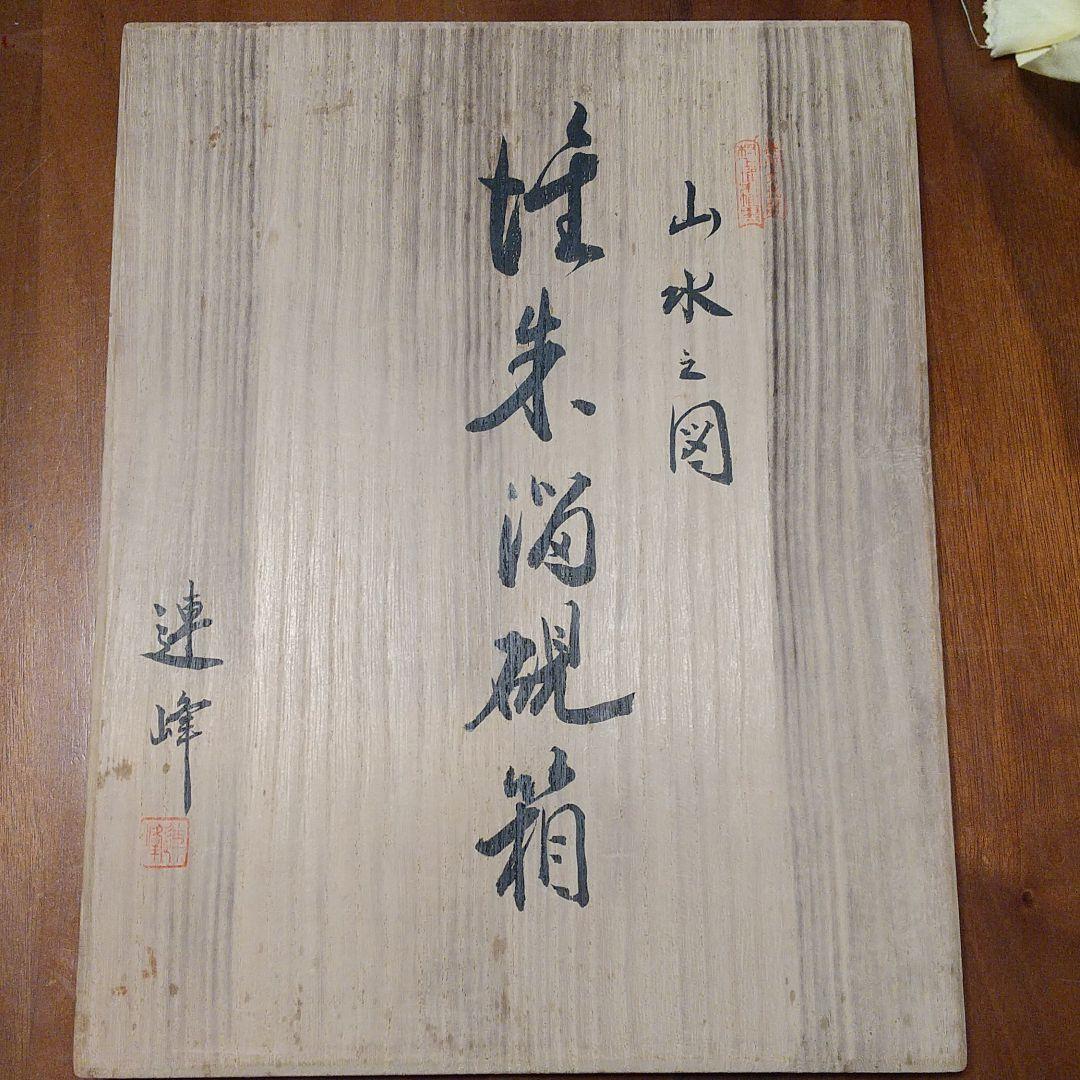 山水之図
堆朱溜硯箱
連峰